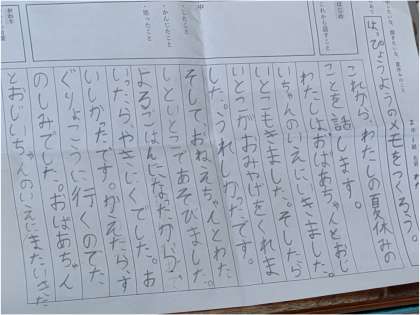 はっぴょうようのメモをつくろう。
はじめ
これから話すこと
中
・したこと
・かんじたこと
・思ったこと
これから、わたしの夏休みの
ことを話します。
わたしはおばあちゃんとおじ
いちゃんのいえにいきました。
いとこもきました。そしたら
いとこがおみやげをくれま
した。うれしかったです。
そしておねえちゃんとわた
しといとこであそびました。
よるごはんになたから、
いったらやきにくでした。お
いしかったです。かえたら、す
ぐりょこうに行くのでた
のしみでした。おばあちゃん
とおじいちゃんのいえにまたいきた